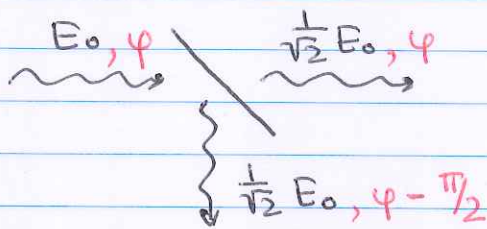 E₀, φ
1/√2 E₀, φ
1/√2 E₀, φ - π/2